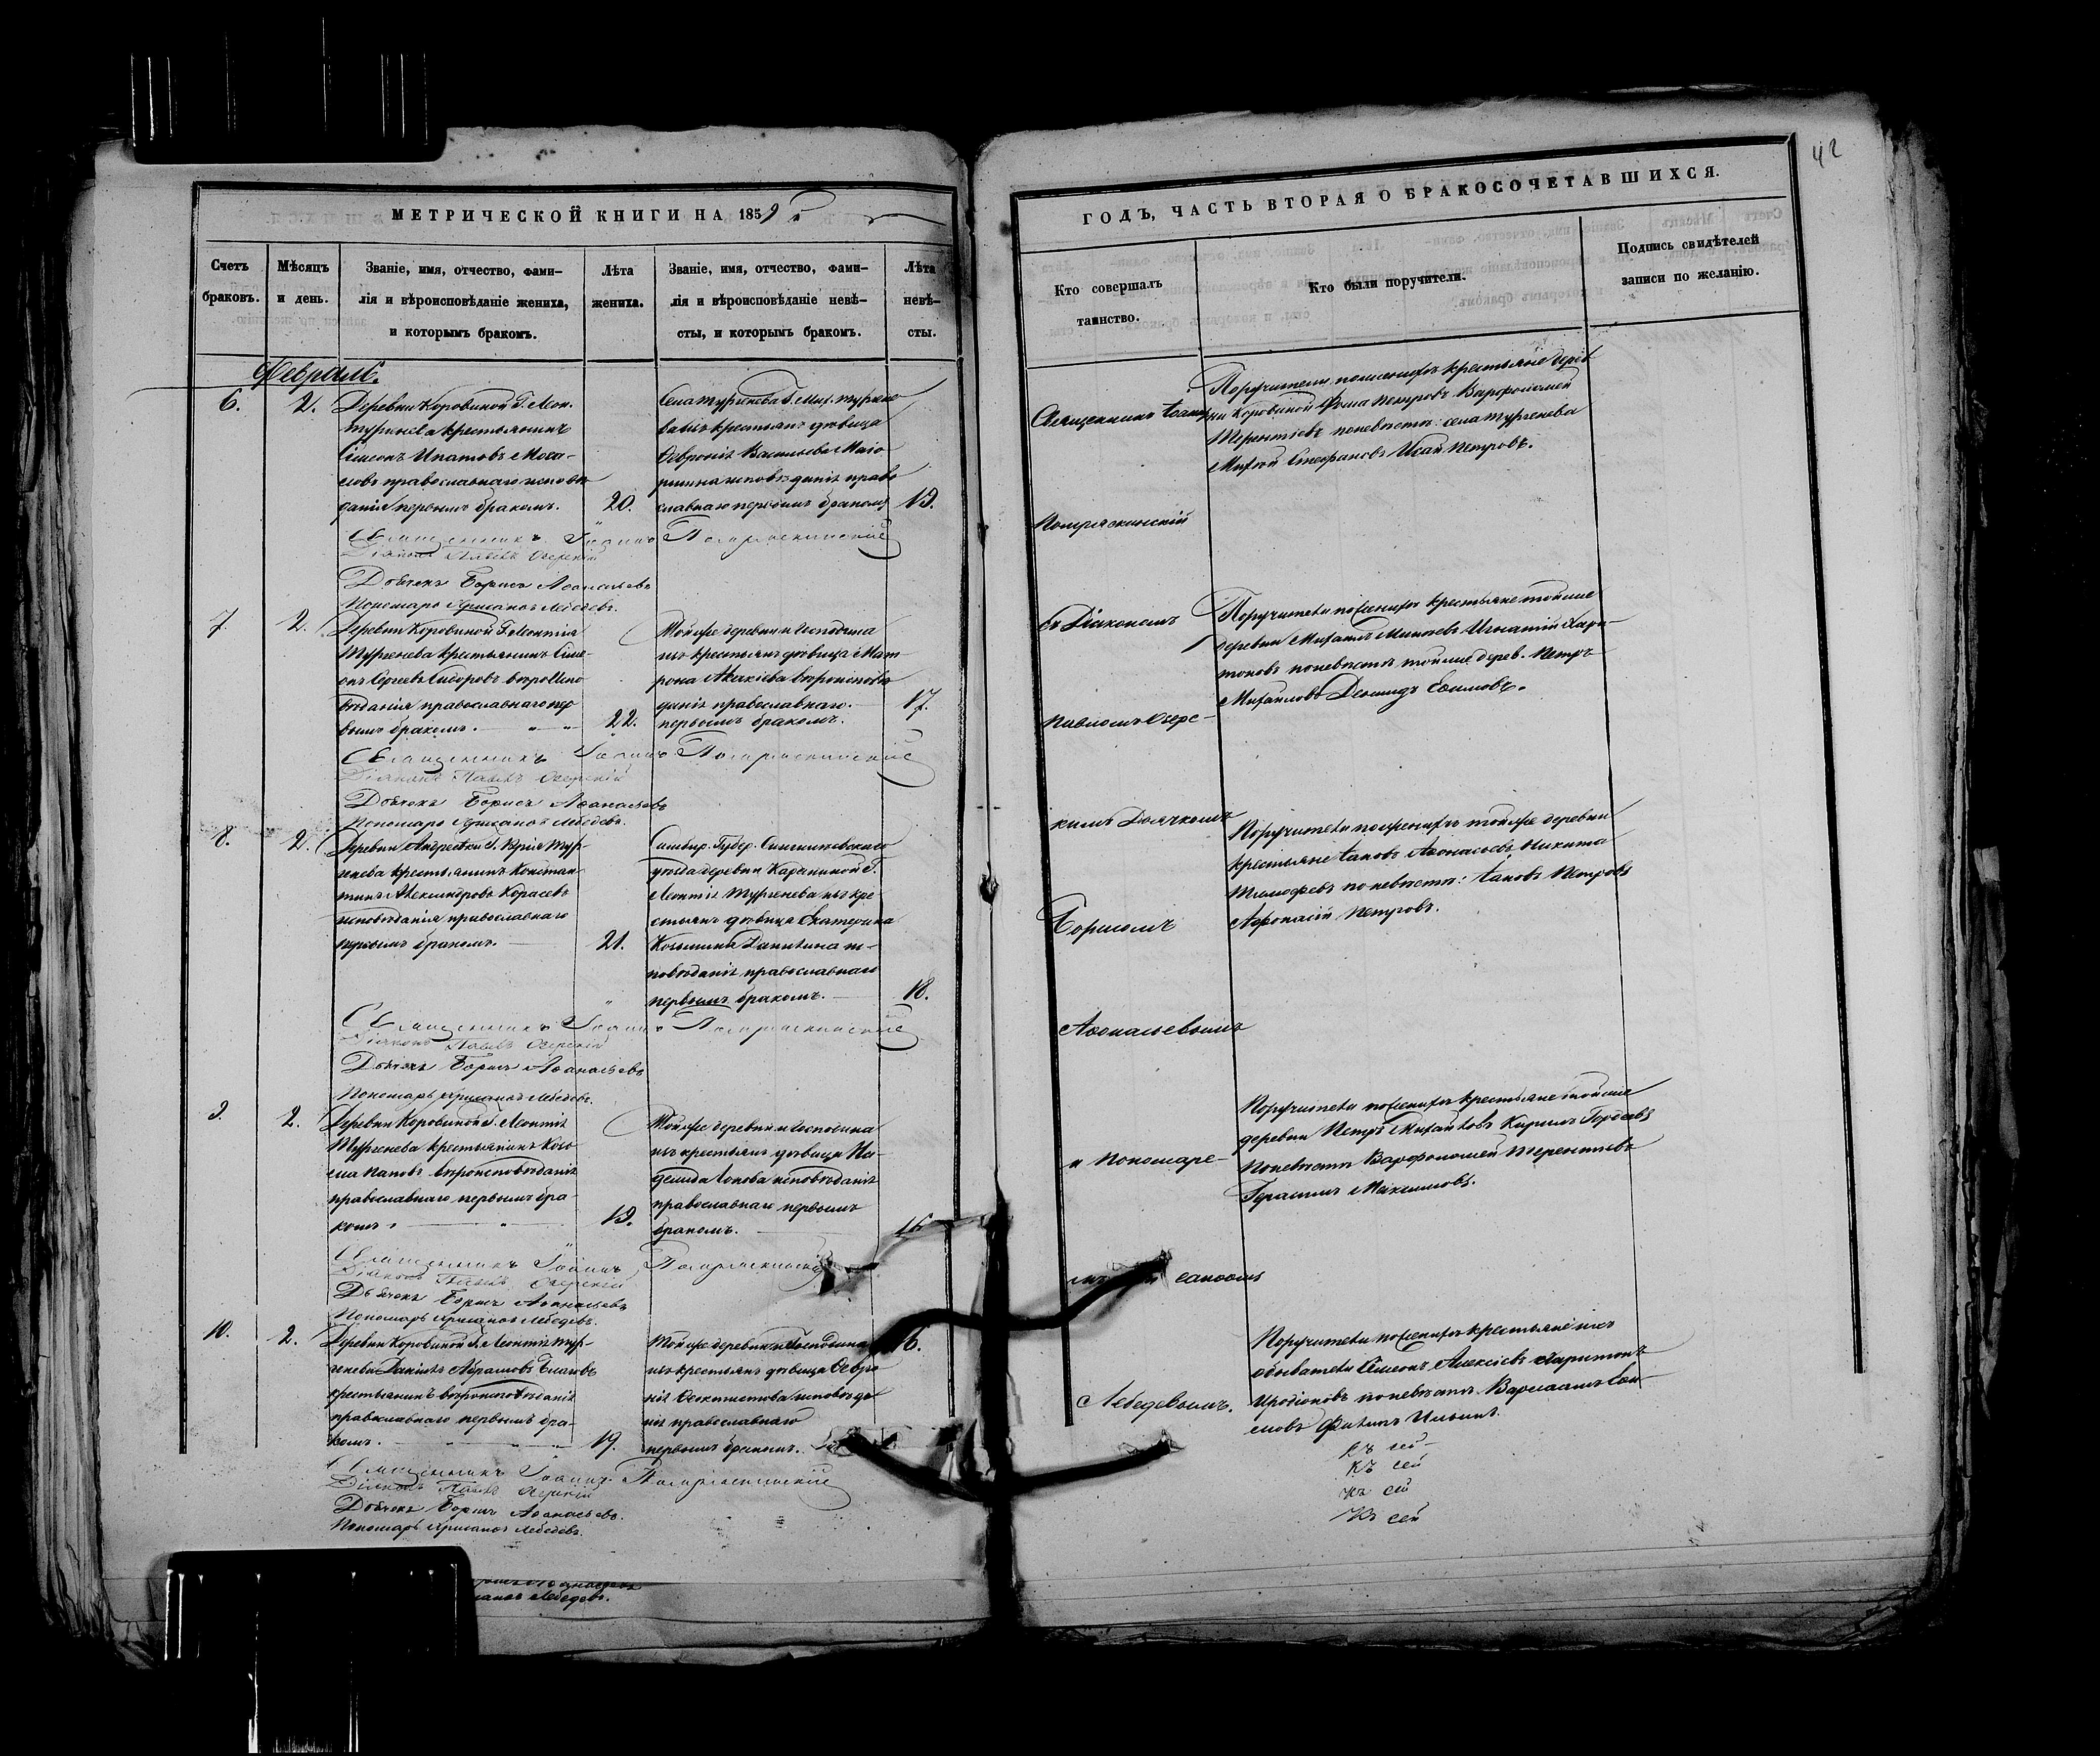 МЕТРИЧЕСКОЙ КНИГИ НА 1859
Счетъ браковъ.
Мѣсяцъ и день.
Званіе, имя, отчество, фами-
лія и вѣроисповѣданіе жениха,
и которымъ бракомъ.
Лѣта жениха.
Званіе, имя, отчество, фами-
лія и вѣроисповѣданіе невѣ-
сты, и которымъ бракомъ.
Лѣта невѣ-
сты.
Февраль.
6. 2.
Деревни Коровиной Г. Леон.
Тургенева крестьянинъ
Симеонъ Ипатовъ
православнаго исповѣ
данія первымъ бракомъ. 20.
Села Тургенева Г. Мих. Тургене
крестьянъ дѣвица
Февронія Васильева
исповѣданія право
славнаго первымъ бракомъ 19.
Священникъ Іоаннъ
Діаконъ Павелъ Озерскій
Дьячекъ Борисъ Аѳанасьевъ
Пономарь Лебедевъ.
7. 2.
Деревни Коровиной Г. Леонтія
Тургенева крестьянинъ Симе-
онъ Сергеевъ Сидоровъ вѣроиспо
вѣданія православнаго пер
вымъ бракомъ. 22.
Той же деревни и Господина
изъ крестьянъ дѣвица Мат
рона вѣроисповѣ
данія православнаго. 17.
первымъ бракомъ.
Священникъ Іоаннъ
Діаконъ Павелъ Озерскій
Дьячекъ Борисъ Аѳанасьевъ
Пономарь Лебедевъ.
8. 2.
Деревни Андреевки Г. Юрія Тур-
генева крестьянинъ Констан
тинъ Александровъ
исповѣданія православнаго
первымъ бракомъ. 21.
Симбир. Губер. Сенгилеевскаго
уѣзда деревни Г.
Леонтія Тургенева изъ кре
стьянъ дѣвица Екатерина
Козьмина ис-
повѣданія православнаго
первымъ бракомъ. 18.
Священникъ Іоаннъ
Діаконъ Павелъ Озерскій
Дьячекъ Борисъ Аѳанасьевъ
Пономарь Лебедевъ.
9. 2.
Деревни Коровиной Г. Леонтія
Тургенева крестьянинъ Козь
ма вѣроисповѣданія
православнаго первымъ бра-
комъ. 19.
Той же деревни и Господина
изъ крестьянъ дѣвица На-
дежда исповѣданія
православнаго первымъ
бракомъ. 16
Священникъ Іоаннъ
Діаконъ Павелъ Озерскій
Дьячекъ Борисъ Аѳанасьевъ
Пономарь Лебедевъ.
10. 2.
Деревни Коровиной Г. Леонтія Тур-
генева Даніилъ Абрамовъ
крестьянинъ вѣроисповѣданія
православнаго первымъ бра-
комъ. 19.
Той же деревни и Господина 16.
изъ крестьянъ дѣвица Февро
нія Ѳеоктистова исповѣда
нія православнаго
первымъ бракомъ.
Священникъ Іоаннъ
Діаконъ Павелъ Озерскій
Дьячекъ Борисъ Аѳанасьевъ.
Пономарь Лебедевъ.
Лебедевъ.
42
ГОДЪ, ЧАСТЬ ВТОРАЯ О БРАКОСОЧЕТАВШИХСЯ.
Кто совершалъ
таинство.
Кто были поручители.
Подпись свидѣтелей
записи по желанію.
Священникъ Іоаннъ
съ Діакономъ
Павломъ Озерс-
кимъ Дьячкомъ
Борисомъ
Аѳанасьевымъ
и Пономаре-
Лебедевымъ.
Поручители по женихѣ крестьяне дерев
ни Коровиной Ѳома Петровъ Варфоломей
Терентьевъ по невѣстѣ: села Тургенева
Стефановъ Исай Петровъ.
Поручители по женихѣ крестьяне той же
деревни Михаилъ Игнатій Хари-
тоновъ по невѣстѣ той же дерев. Петръ
Михайловъ Демидъ Ефимовъ.
Поручители по женихѣ той же деревни
крестьяне Іаковъ Аѳанасьевъ Никита
Тимофеевъ по невѣстѣ: Іаковъ Петровъ
Аѳанасій Петровъ.
Поручители по женихѣ крестьяне той же
деревни Петръ Михайловъ Кирилъ Гордеевъ
По невѣстѣ Варфоломей Терентьевъ
Герасимъ Максимовъ.
Поручители по женихѣ крестьяне
обыватели Симеонъ Алексѣевъ Харитонъ
Иродіоновъ по невѣстѣ Варлаамъ
Филипъ Ильинъ.
Къ сей
Къ сей
Къ сей
Къ сей